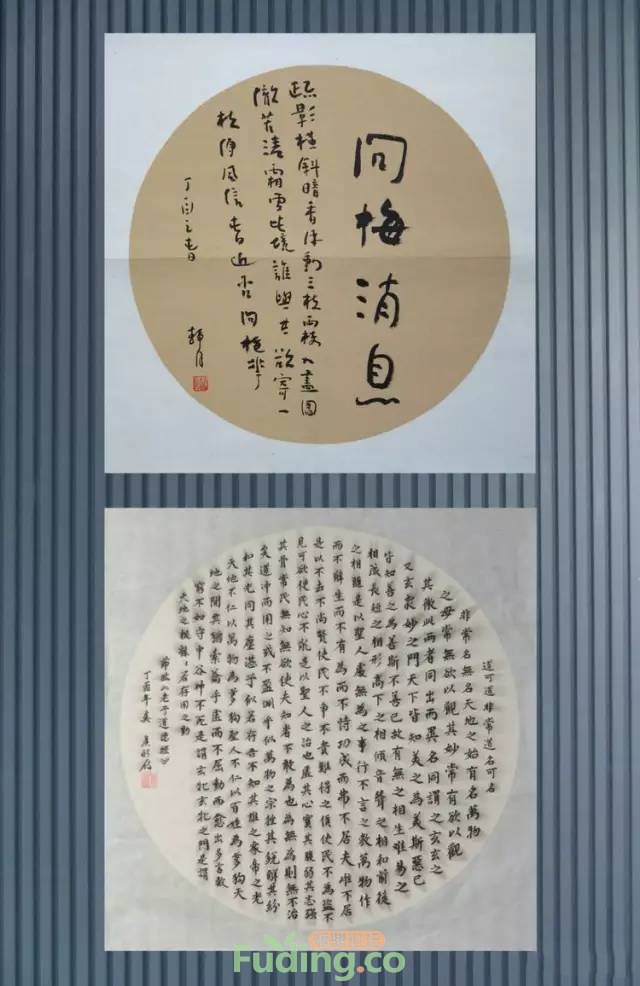 问梅消息
疏影横斜暗香浮動三枝兩枝入畫圖
澈苦清霜雪此境誰與共欲寄一
枝傳風信春近否问梅花
丁酉之春
道可道非常道名可名
非常名無名天地之始有名萬物
之母常無欲以觀其妙常有欲以觀
其徼此兩者同出而異名同謂之玄玄之
又玄衆妙之門天下皆知美之為美斯惡已
皆知善之為善斯不善已故有無之相生難易之
相成長短之相形高下之相傾音聲之相和前後
之相隨是以聖人處無為之事行不言之教萬物作
而不辭生而不有為而不恃功成而弗不居夫唯不居
是以不去不尚賢使民不爭不貴難得之貨使民不為盜不
見可欲使民心不亂是以聖人之治也虛其心實其腹弱其志强
其骨常民無知無欲使夫知者不敢為也為無為則無不治
矣道冲而用之或不盈渊乎似萬物之宗挫其銳解其紛
和其光同其塵湛乎似若存吾不知其誰之家帝之先
天地不仁以萬物為芻狗聖人不仁以百姓為芻狗天
地之閒其猶橐籥乎虛而不屈動而愈出多言數
窮不如守中谷神不死是謂玄牝玄牝之門是謂
天地之根緜緜若存用之勤
丁酉年
Fuding.co